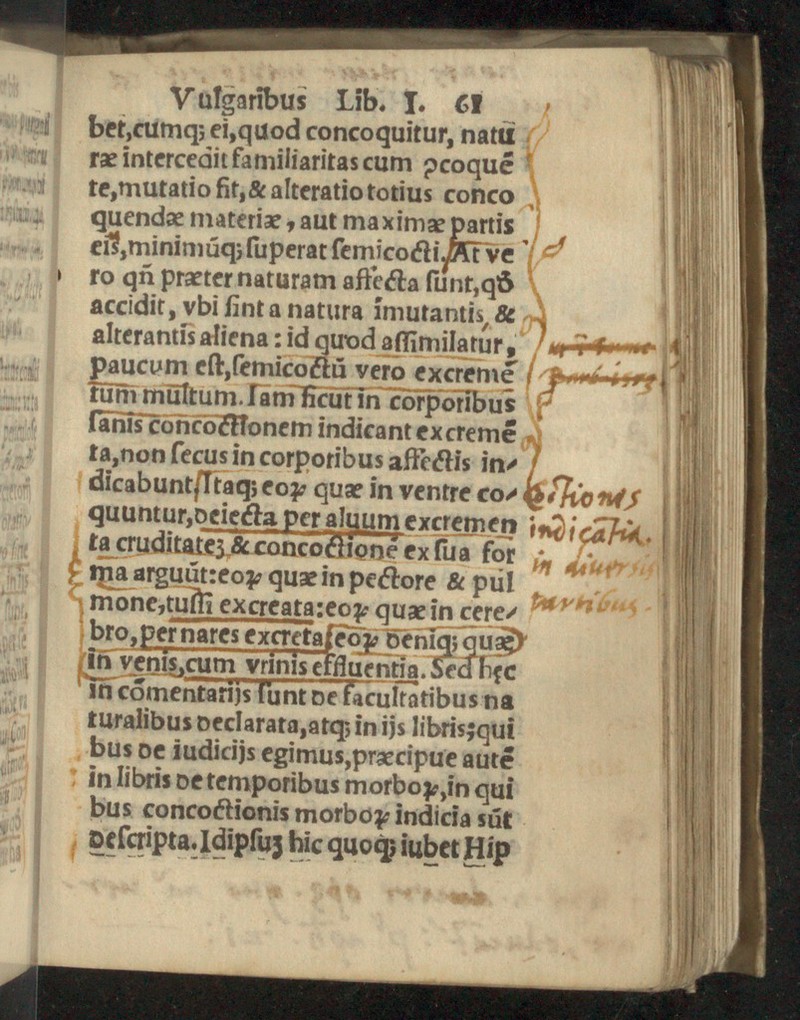 Vulgaribus Lib. I. 61
bet,cũmq; ei,quod concoquitur, natu
ræ intercedit familiaritas cum ꝯcoquẽ
te,mutatio fit,& alteratio totius conco
quendæ materiæ, aut maximæ partis
eiꝰ,minimũq; ſuperat ſemicocti. At ve
ro qñ præter naturam affecta ſunt,qđ
accidit, vbi ſint a natura ĩmutantis, &
alterantis aliena: id quod aſſimilatur,
paucum eſt,ſemicoctũ vero excremẽ
tum multum. Iam ſicut in corporibus
ſanis concoctionem indicant excremẽ
ta,non ſecus in corporibus affectis in⸗
dicabunt/Itaq; eoꝝ quæ in ventre co⸗
quuntur,deiecta per aluum excremen
ta cruditatẽ,& concoctionẽ ex ſua for
ma arguũt:eoꝝ quæ in pectore & pul
mone,tuſſi excreata:eoꝝ quæ in cere⸗
bro,per nares excreta/eoꝝ deniq; quæ
in venis,cum vrinis effluentia. Sed hęc
in cõmentarijs ſunt de facultatibus na
turalibus declarata,atq; in ijs libris;qui
bus de iudicijs egimus,præcipue autẽ
in libris de temporibus morboꝝ,in qui
bus concoctionis morboꝝ indicia sũt
deſcripta. Idipſuꝫ hic quoq; iubet Hip
indicātia.
in diuersis
partibus.